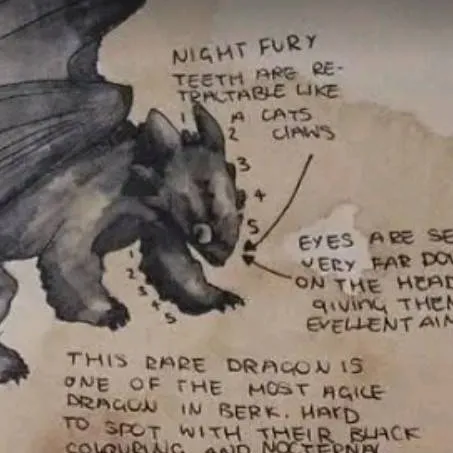 NIGHT FURY
TEETH ARE RE-
TRACTABLE LIKE
A CATS
CLAWS
1
2
3
4
5
EYES ARE SE
VERY FAR DOW
ON THE HEAD
GIVING THEM
EVELLENT AIM
1
2
3
4
5
THIS RARE DRAGON IS
ONE OF THE MOST AGILE
DRAGON IN BERK. HARD
TO SPOT WITH THEIR BLACK
COLOURING AND NOCTERNAL